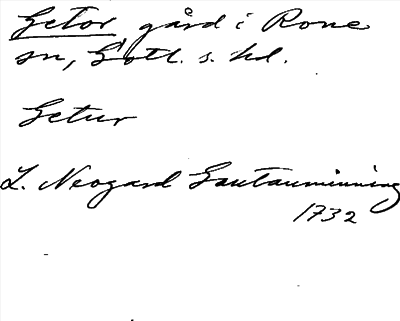 Getor gård i Rone
sn, Gotl. s. hd.
Getur
L. Neogard Gautauminning
1732